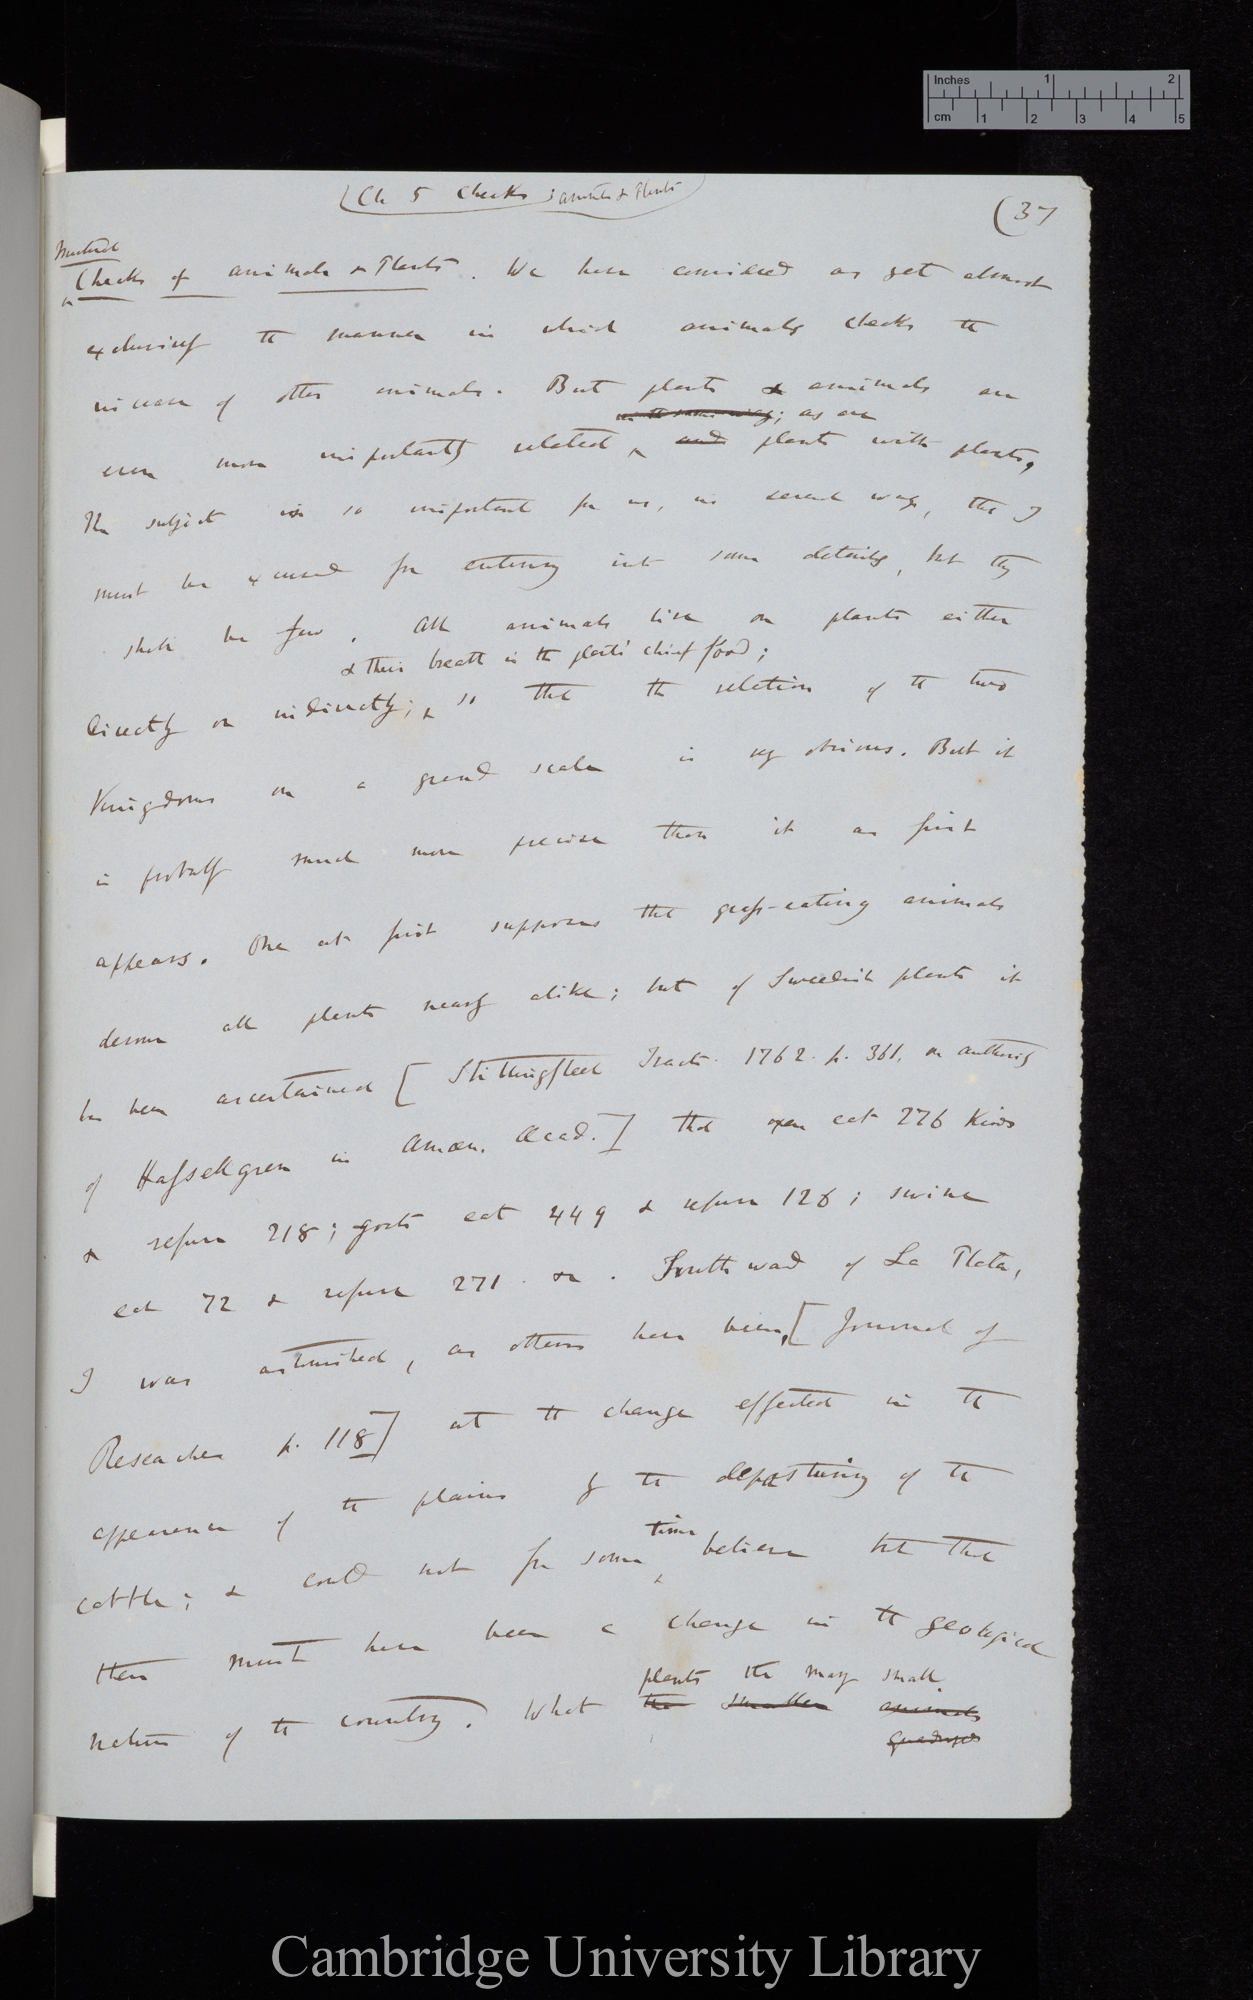 Inches 1 2
cm 1 2 3 4 5
(Ch 5 Checks animals & Plants)
(37
Mutual
Checks of animals & Plants. We have considered as yet almost
exclusively the manner in which animals checks the
increase of other animals. But plants & animals are
in the same way; as are
even more importantly related and plants with plants,
The subject is so important for us, in several ways, that I
must be excused for entering into some details, but they
shall be few. All animals live on plants either
& their breath is the plants' chief food;
directly or indirectly; so that the relation of the two
Kingdoms on a grand scale is very obvious. But it
is probably much more precise than it as first
appears. One at first supposes that grass-eating animals
devour all plants nearly alike; but of Swedish plants it
has been ascertained [Stillingfleet Tracts. 1762. p. 361. on authority
of Hasselgren in Amœn. Acad.] that oxen eat 276 kinds
& refuse 218; goats eat 449 & refuse 126; swine
eat 72 & refuse 271 &c. Southward of La Plata,
I was astonished, as others have been, [Journal of
Researches p. 118] at the change effected in the
appearance of the plains by the depasturing of the
cattle; & could not for some believe but that
time
there must have been a change in the geological
plants the many small
nature of the country. What the smaller animals
quadrupeds
Cambridge University Library